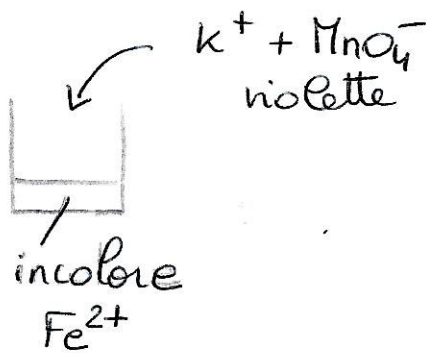 K⁺ + MnO₄⁻
violette
incolore
Fe²⁺